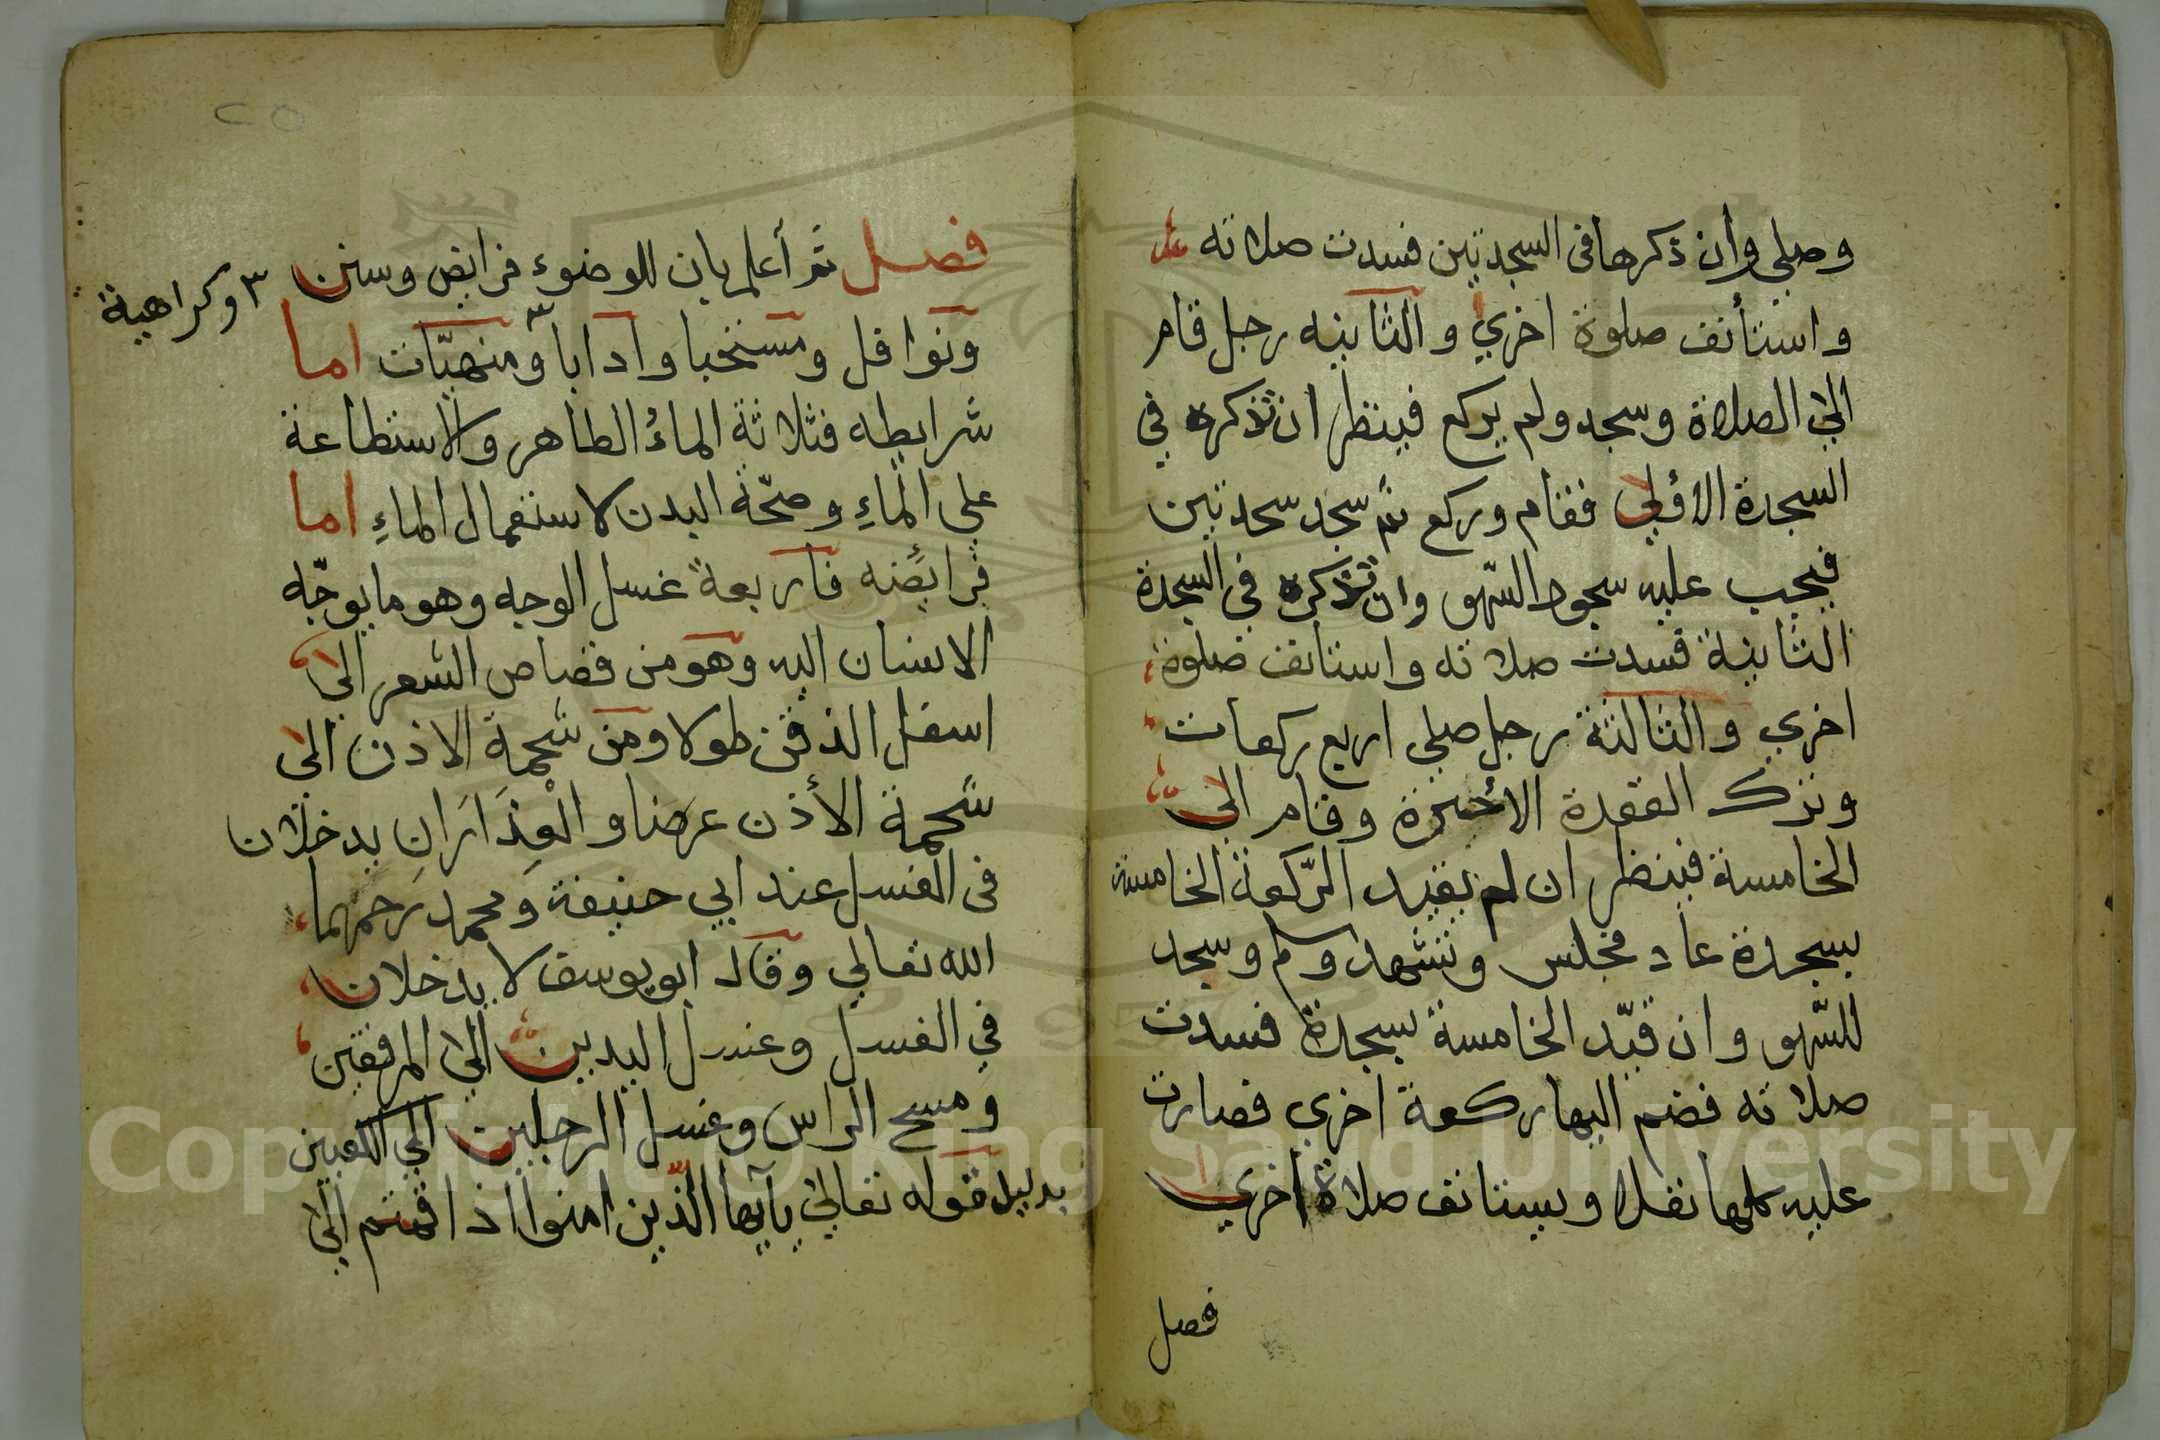 وصلي وان ذكرها في السجدتين فسدت صلاته
واستأنف صلوة اخري والثانيه رجل قام
الي الصلاة وسجد ولم يركع فينظر ان تذكره في
السجدة الاؤلي فقام وركع ثم سجد سجدتين
فيجب عليه سجود السّهو وان تذكره في السجدة
الثانية فسدت صلاته واستانف صلوة
اخري والثالثة رجل صلي اربع ركعات
وترك القعدة الأخيرة وقام الي
الخامسة فينظر ان لم يقيد الرّكعة الخامسة
بسجدة عاد فجلس وتشهد وسلم وسجد
للسّهو وان قيّد الخامسة بسجدة فسدت
صلاته فضم اليها ركعة اخري فصارت
عليه كلها نفلا ويستانف صلاة اخري
فصل
٢٥
فصل ثم أعلم بان للوضوء فرايض وسنن
٣ وكراهية
ونوافل ومستحبا واداباً ومنهيّات اما
شرايطه فثلاثة الماءُ الطاهر والاستطاعة
علي الماءِ وصحّة البدن لاستعمال الماءِ اما
فرايضه فاربعة غسل الوجه وهو ما يوجّه
الانسان اليه وهو من قصاص الشعر الي
اسفل الذقن طولا ومن شحمة الاذن الي
شحمة الأذن عرضا والْعِذَارَانِ يدخلان
في الغسل عند ابي حنيفة ومحمد رحمهما
الله تعالي وقال ابو يوسف لا يدخلان
في الغسل وغسل اليدين الي المرفقين
ومسح الراس وغسل الرجلين الي الكعبين
بدليل قوله تعالي يايها الذين امنوا اذا قمتم الي
Copyright © King Saud University